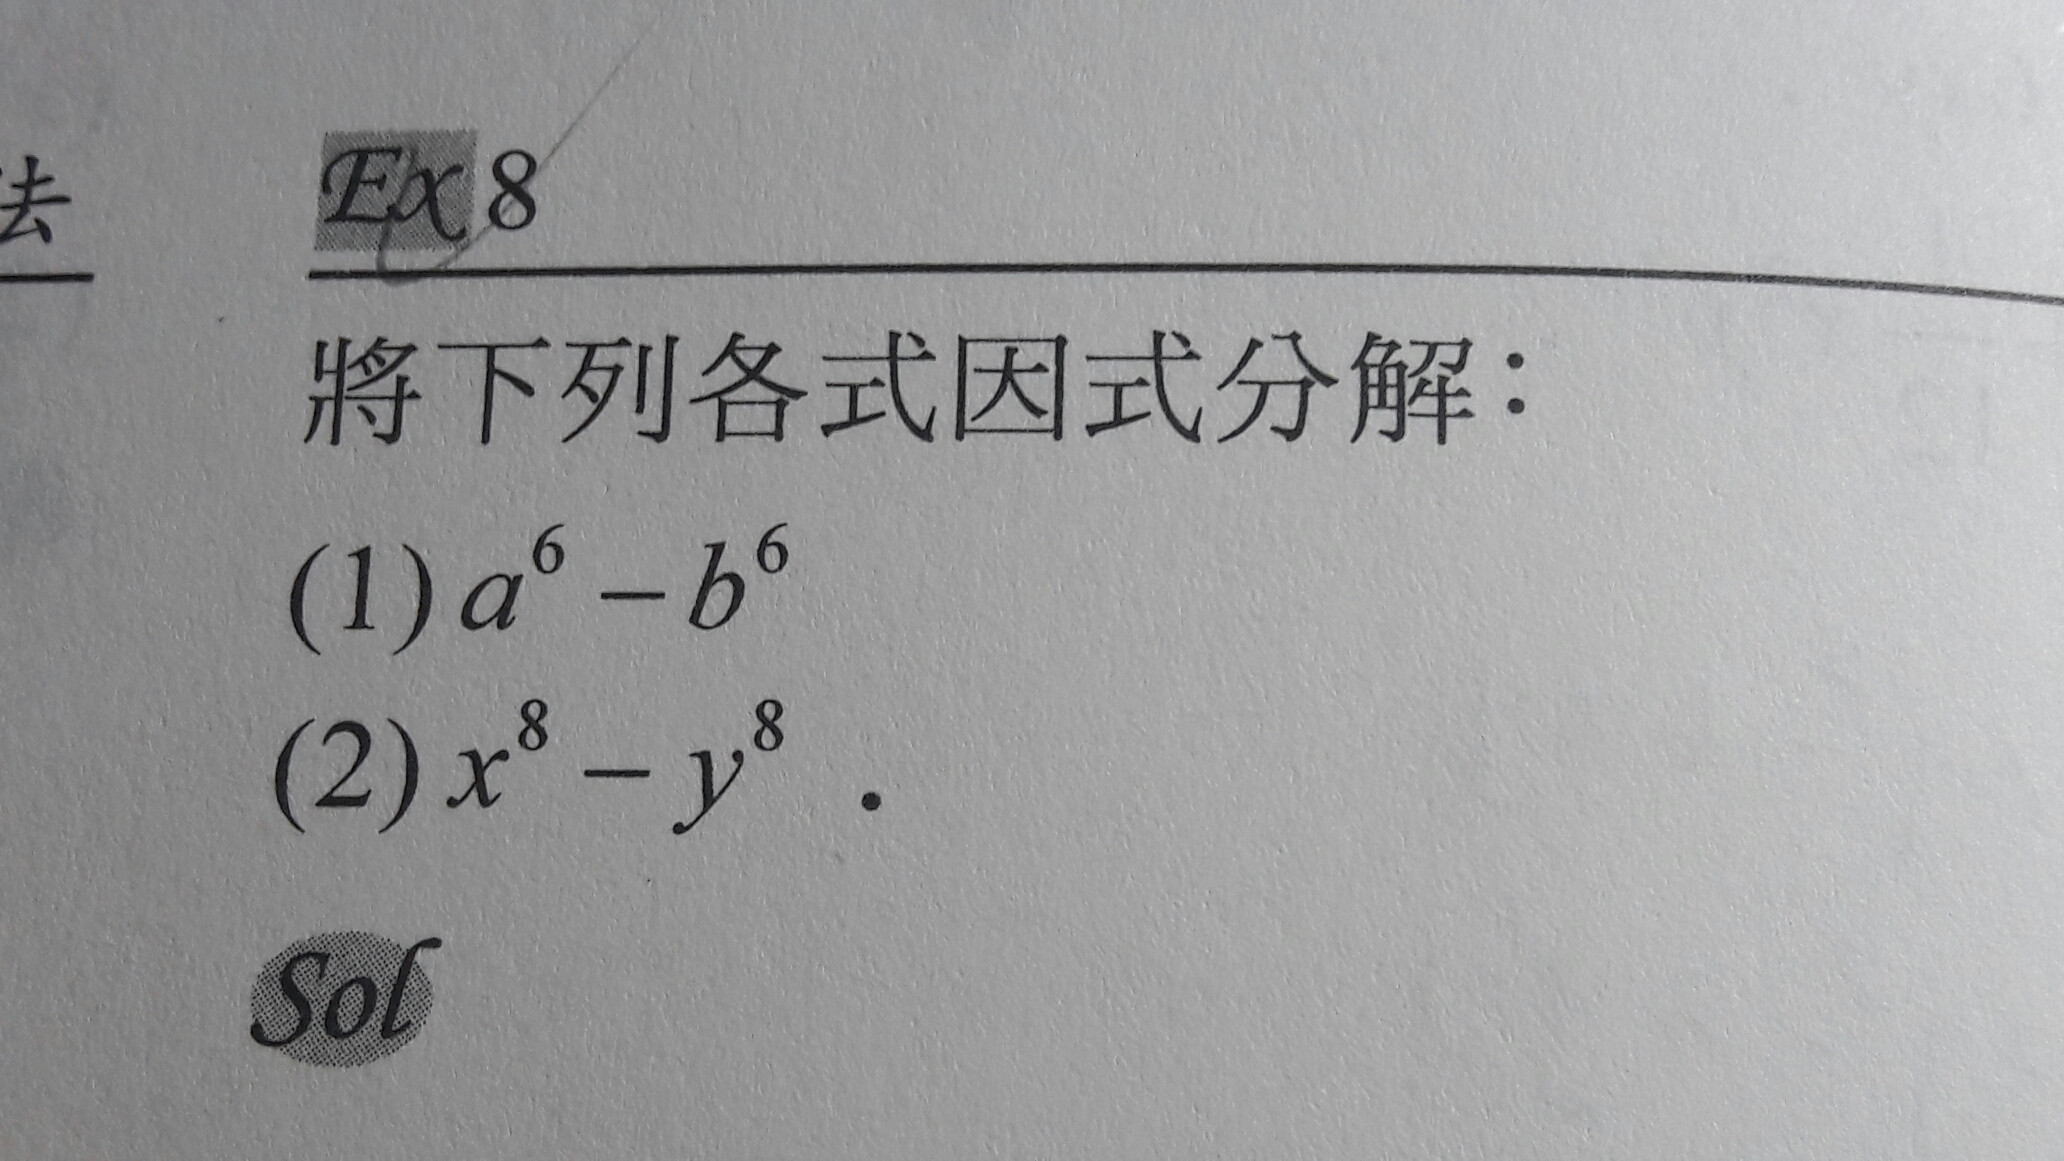 法
Ex 8
將下列各式因式分解：
(1) a⁶ − b⁶
(2) x⁸ − y⁸ .
Sol